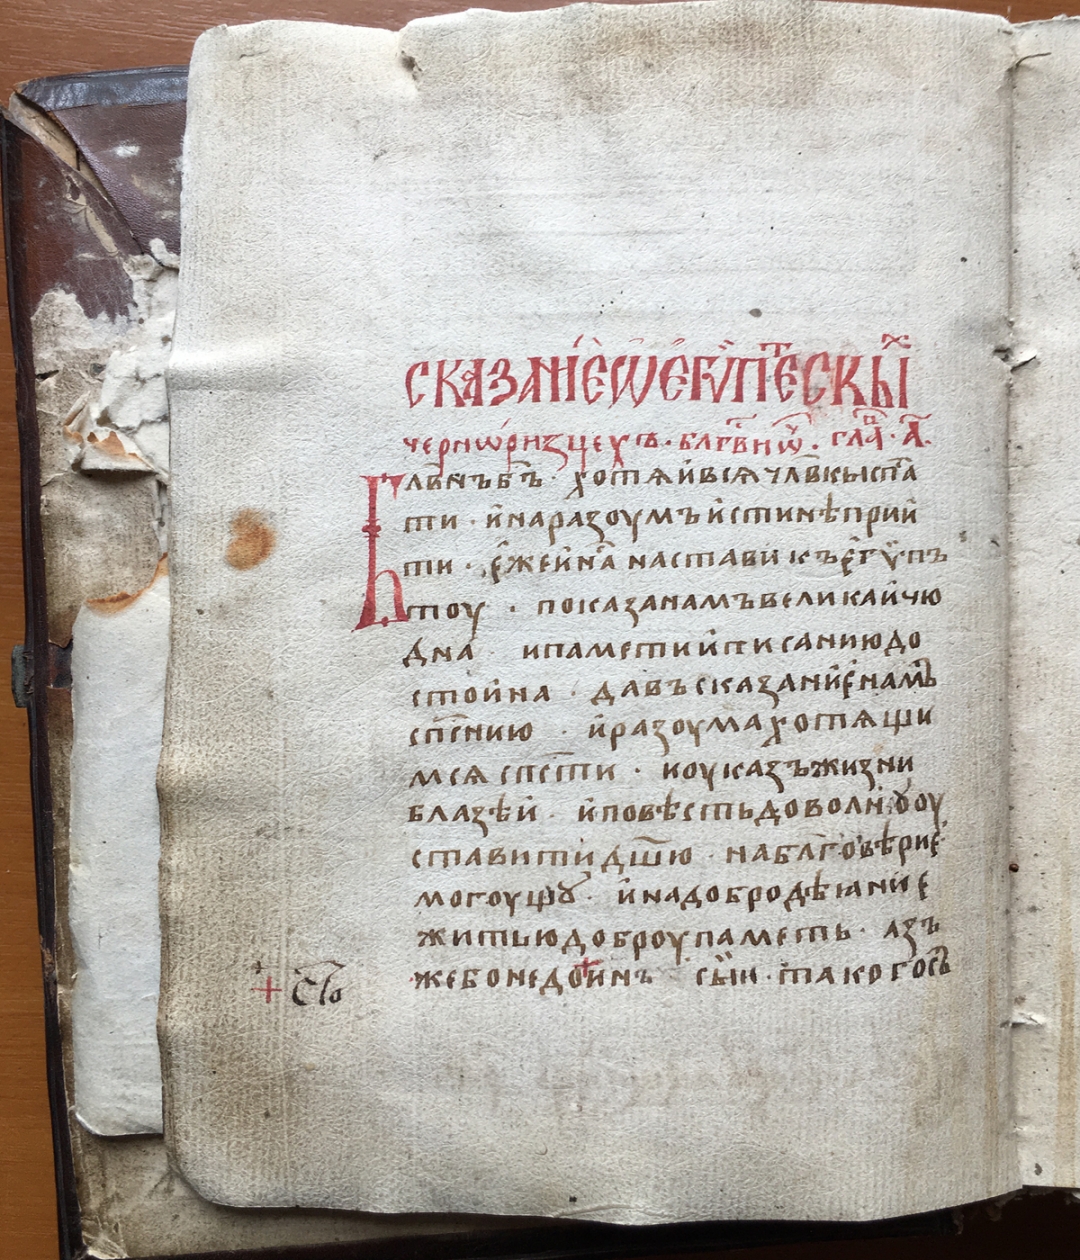 сказанїе ѡ егѵптⷭ҇ескыⷯ
чернѡризцехъ · блгⷭ҇ви ѿ · глⷡ҇а · а҃ ·
Блⷭ҇внъ бъ҃ · хотѧй всѧ члв҃кы спⷭ҇а
ти · и на разоумъ истинѣ прий
ти · еже и нⷭ҇а настави къ егѵпъ
тоу · показа намъ велика и чю
дна · и памети и писанию до
стойна · давъ сказание намъ
спⷭ҇ению · и разоума хотѧщи
мсѧ спⷭ҇ти · и оуказъ жизни
блазѣй · и повѣсть доволнꙋ оу
ставити дш҃ю · на блгⷭ҇овѣрие
могоущꙋ · и на добродѣꙗние
житью доброу паметь · азъ
же бо недⷭ҇оинъ сыи · такогосъ
сто